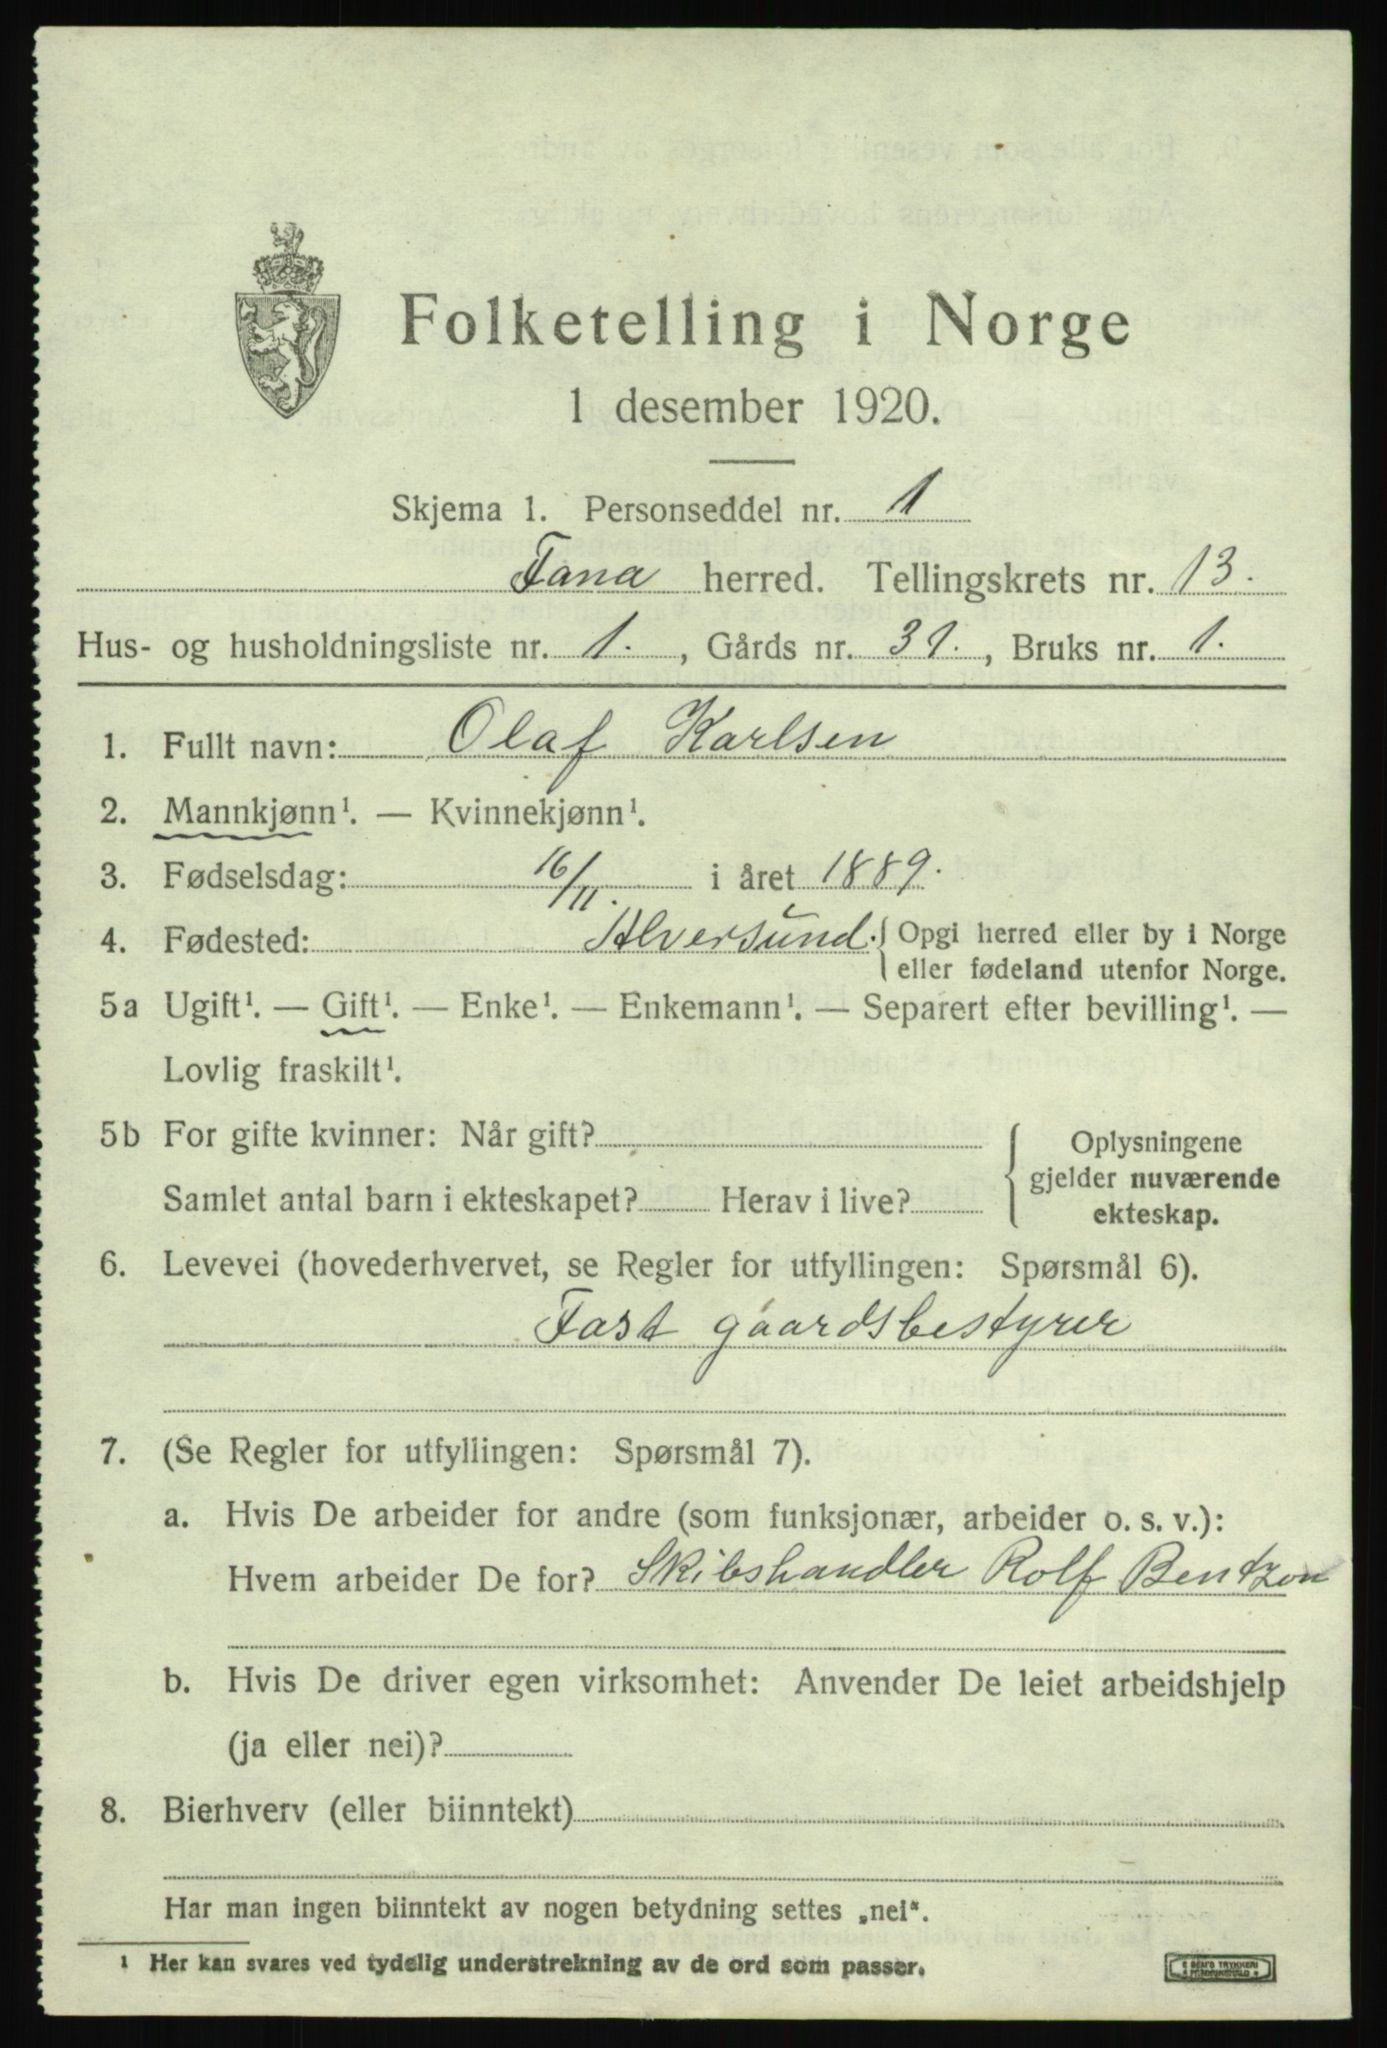 Folketelling i Norge
1 desember 1920.
Skjema 1. Personseddel nr. 1
Fana herred. Tellingskrets nr. 13.
Hus- og husholdningsliste nr. 1., Gårds nr. 31., Bruks nr. 1.
1. Fullt navn: Olaf Karlsen
2. Mannkjønn¹. — Kvinnekjønn¹.
3. Fødselsdag: 16/11. i året 1889.
4. Fødested: Alversund. { Opgi herred eller by i Norge
eller fødeland utenfor Norge.
5a Ugift¹. — Gift¹. — Enke¹. — Enkemann¹. — Separert efter bevilling¹. —
Lovlig fraskilt¹.
5b For gifte kvinner: Når gift?
Samlet antal barn i ekteskapet? Herav i live?
{ Oplysningene
gjelder nuværende
ekteskap.
6. Levevei (hovederhvervet, se Regler for utfyllingen: Spørsmål 6).
Fast gaardsbestyrer
7. (Se Regler for utfyllingen: Spørsmål 7).
a. Hvis De arbeider for andre (som funksjonær, arbeider o. s. v.):
Hvem arbeider De for? Skibshandler Rolf Bentzon
b. Hvis De driver egen virksomhet: Anvender De leiet arbeidshjelp
(ja eller nei)?
8. Bierhverv (eller biinntekt)
Har man ingen biinntekt av nogen betydning settes „nei“.
¹ Her kan svares ved tydelig understrekning av de ord som passer.